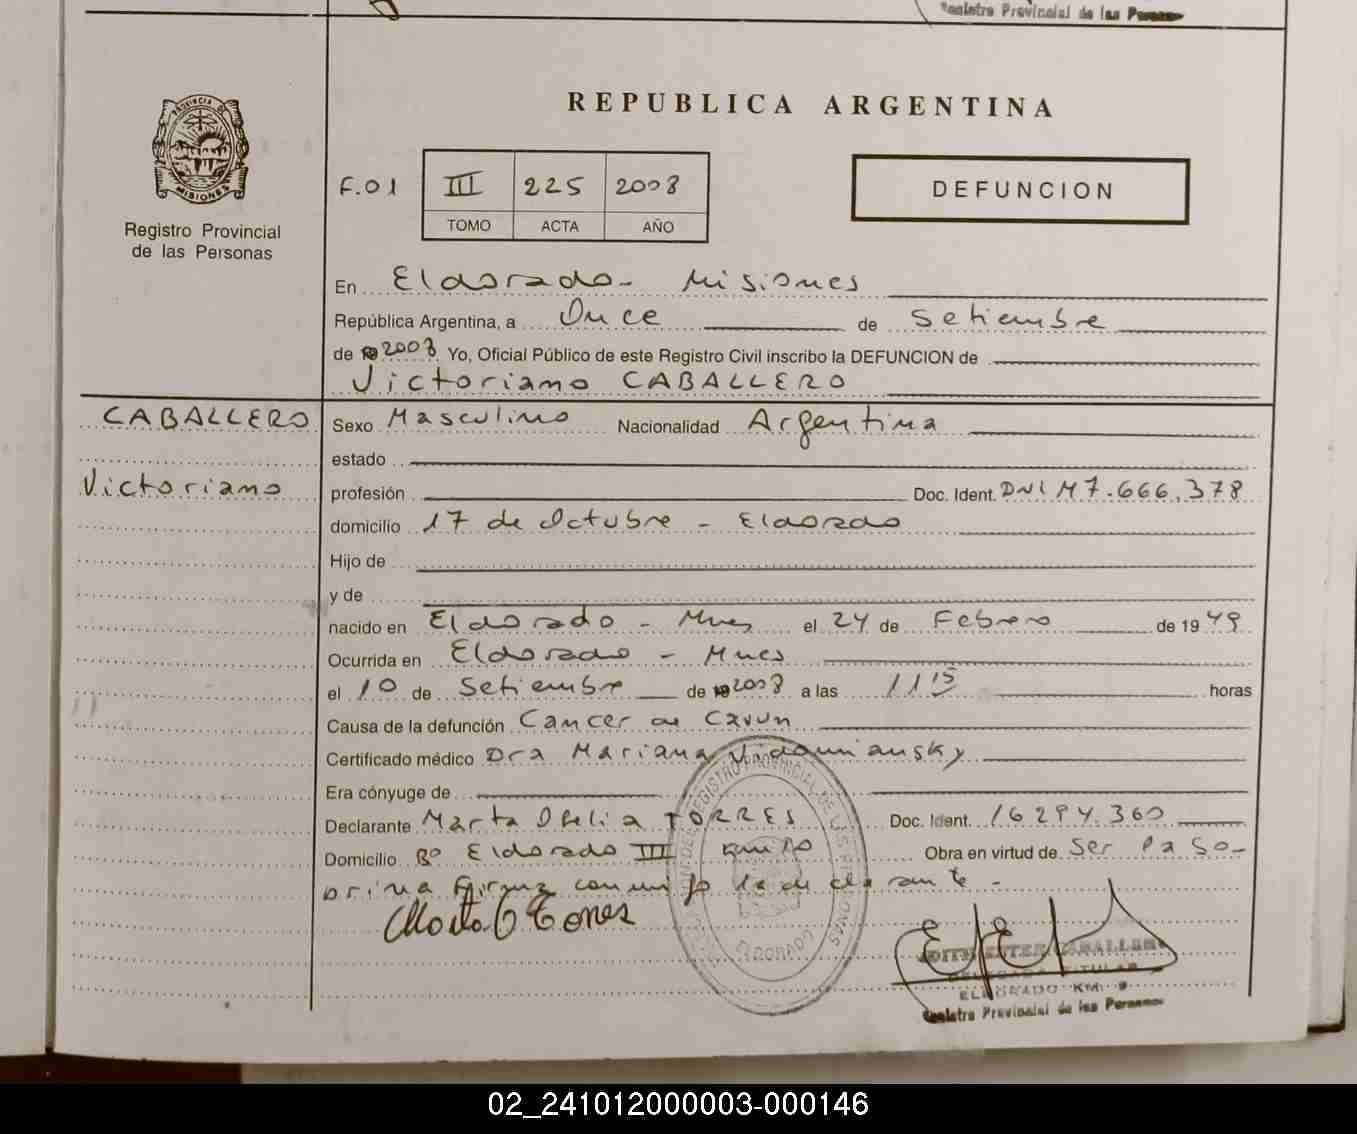 Registro Provincial de las Personas
REPUBLICA ARGENTINA
PROVINCIA DE MISIONES
Registro Provincial
de las Personas
F.01 III 225 2008
TOMO ACTA AÑO
DEFUNCION
En Eldorado - Misiones
República Argentina, a Once de Setiembre
de 2008 Yo, Oficial Público de este Registro Civil inscribo la DEFUNCION de
Victoriano CABALLERO
CABALLERO
Victoriano
Sexo Masculino Nacionalidad Argentina
estado
profesión Doc. Ident. DNI M7.666.378
domicilio 17 de Octubre - Eldorado
Hijo de
y de
nacido en Eldorado - Mnes el 24 de Febrero de 1949
Ocurrida en Eldorado - Mnes
el 10 de Setiembre de 2008 a las 11 15 horas
Causa de la defunción Cancer de
Certificado médico Dra Mariana
Era cónyuge de
Declarante Marta Ofelia TORRES Doc. Ident. 16294.360
Domicilio Bº Eldorado III Km 10 Obra en virtud de Ser la So-
brina Firma conmigo la declarante -
Marta O Torres
REGISTRO PROVINCIAL DE LAS PERSONAS
ELDORADO
ESTER CABALLERO
DELEGADA TITULAR
ELDORADO KM. 9
Registro Provincial de las Personas
02_241012000003-000146